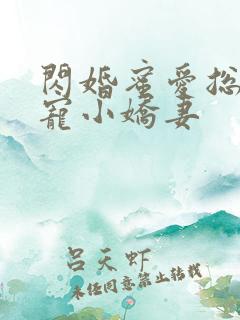 閃婚蜜愛总
寵小嬌妻
呂天虾
未经同意禁止转载